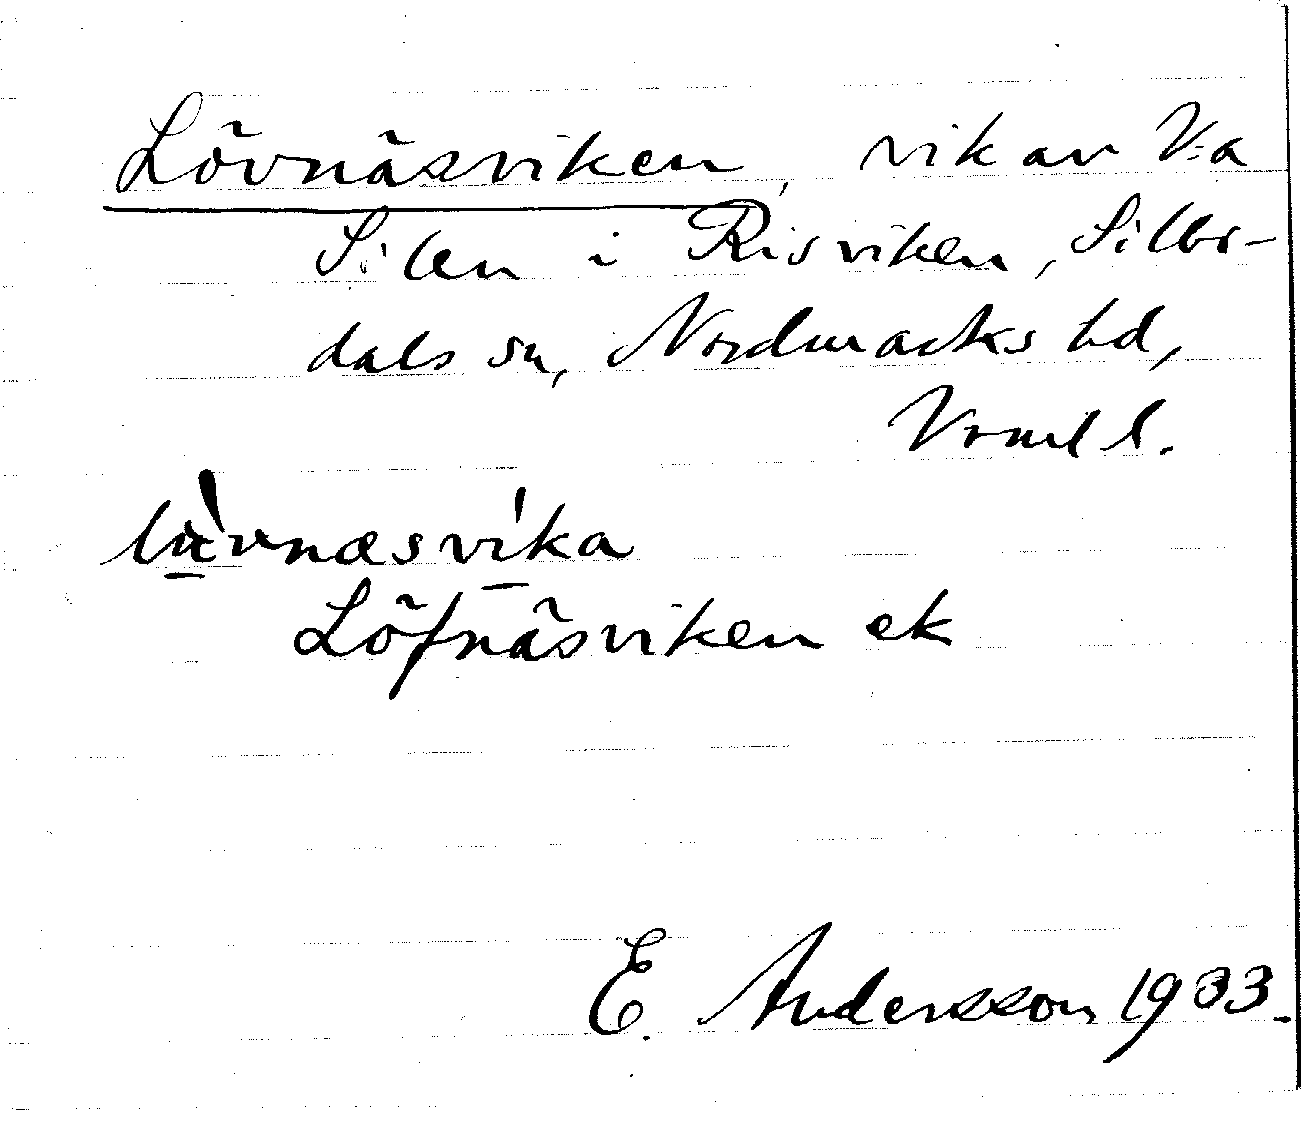 Lövnäsviken, vik av V:a
Silen i Risviken, Sillbo-
dals sn, Nordmarks hd,
Vrml l.
Löfnäsviken ek
E. Andersson 1933.